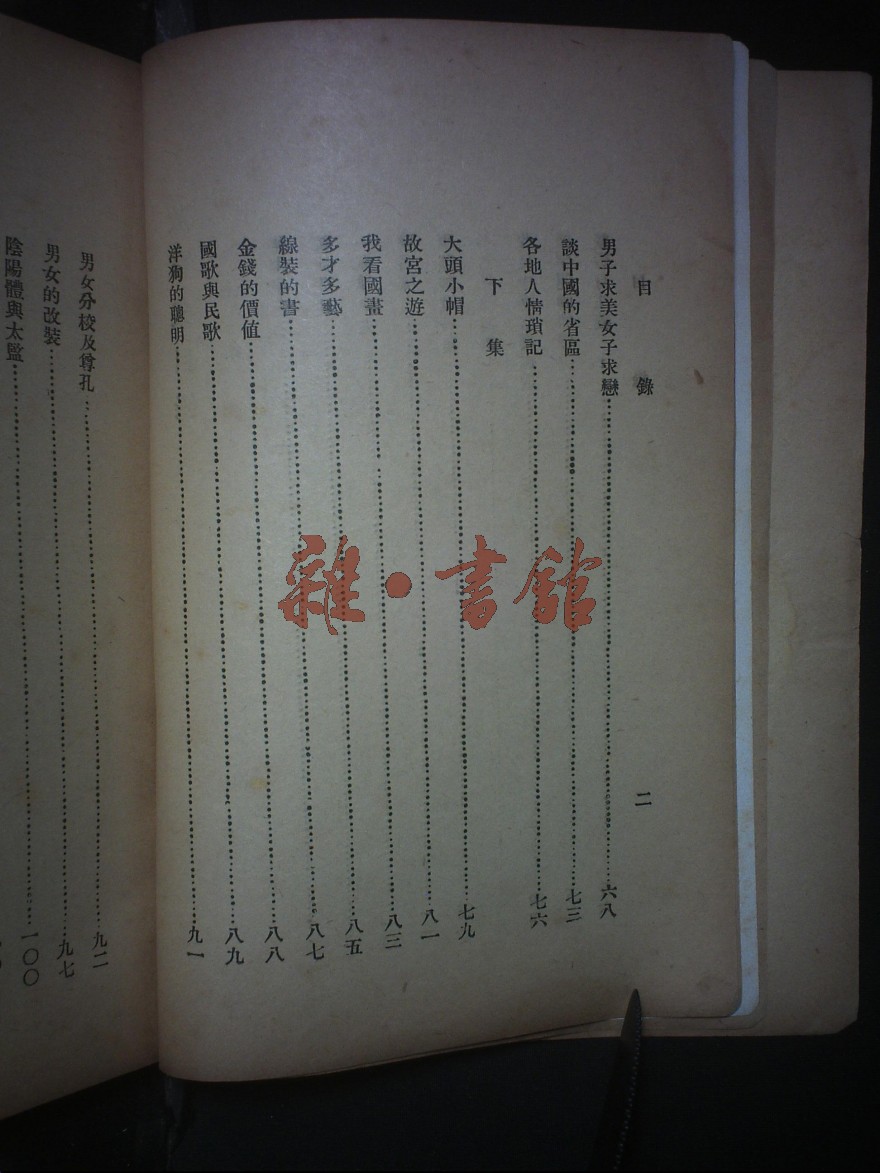 目錄 二
男子求美女子求戀……六八
談中國的省區……七三
各地人情瑣記……七六
下集
大頭小帽……七九
故宮之遊……八一
我看國畫……八三
多才多藝……八五
線裝的書……八七
金錢的價值……八八
國歌與民歌……八九
洋狗的聰明……九一
男女分校及尊孔……九二
男女的改裝……九七
陰陽體與太監……一〇〇
雜·書館